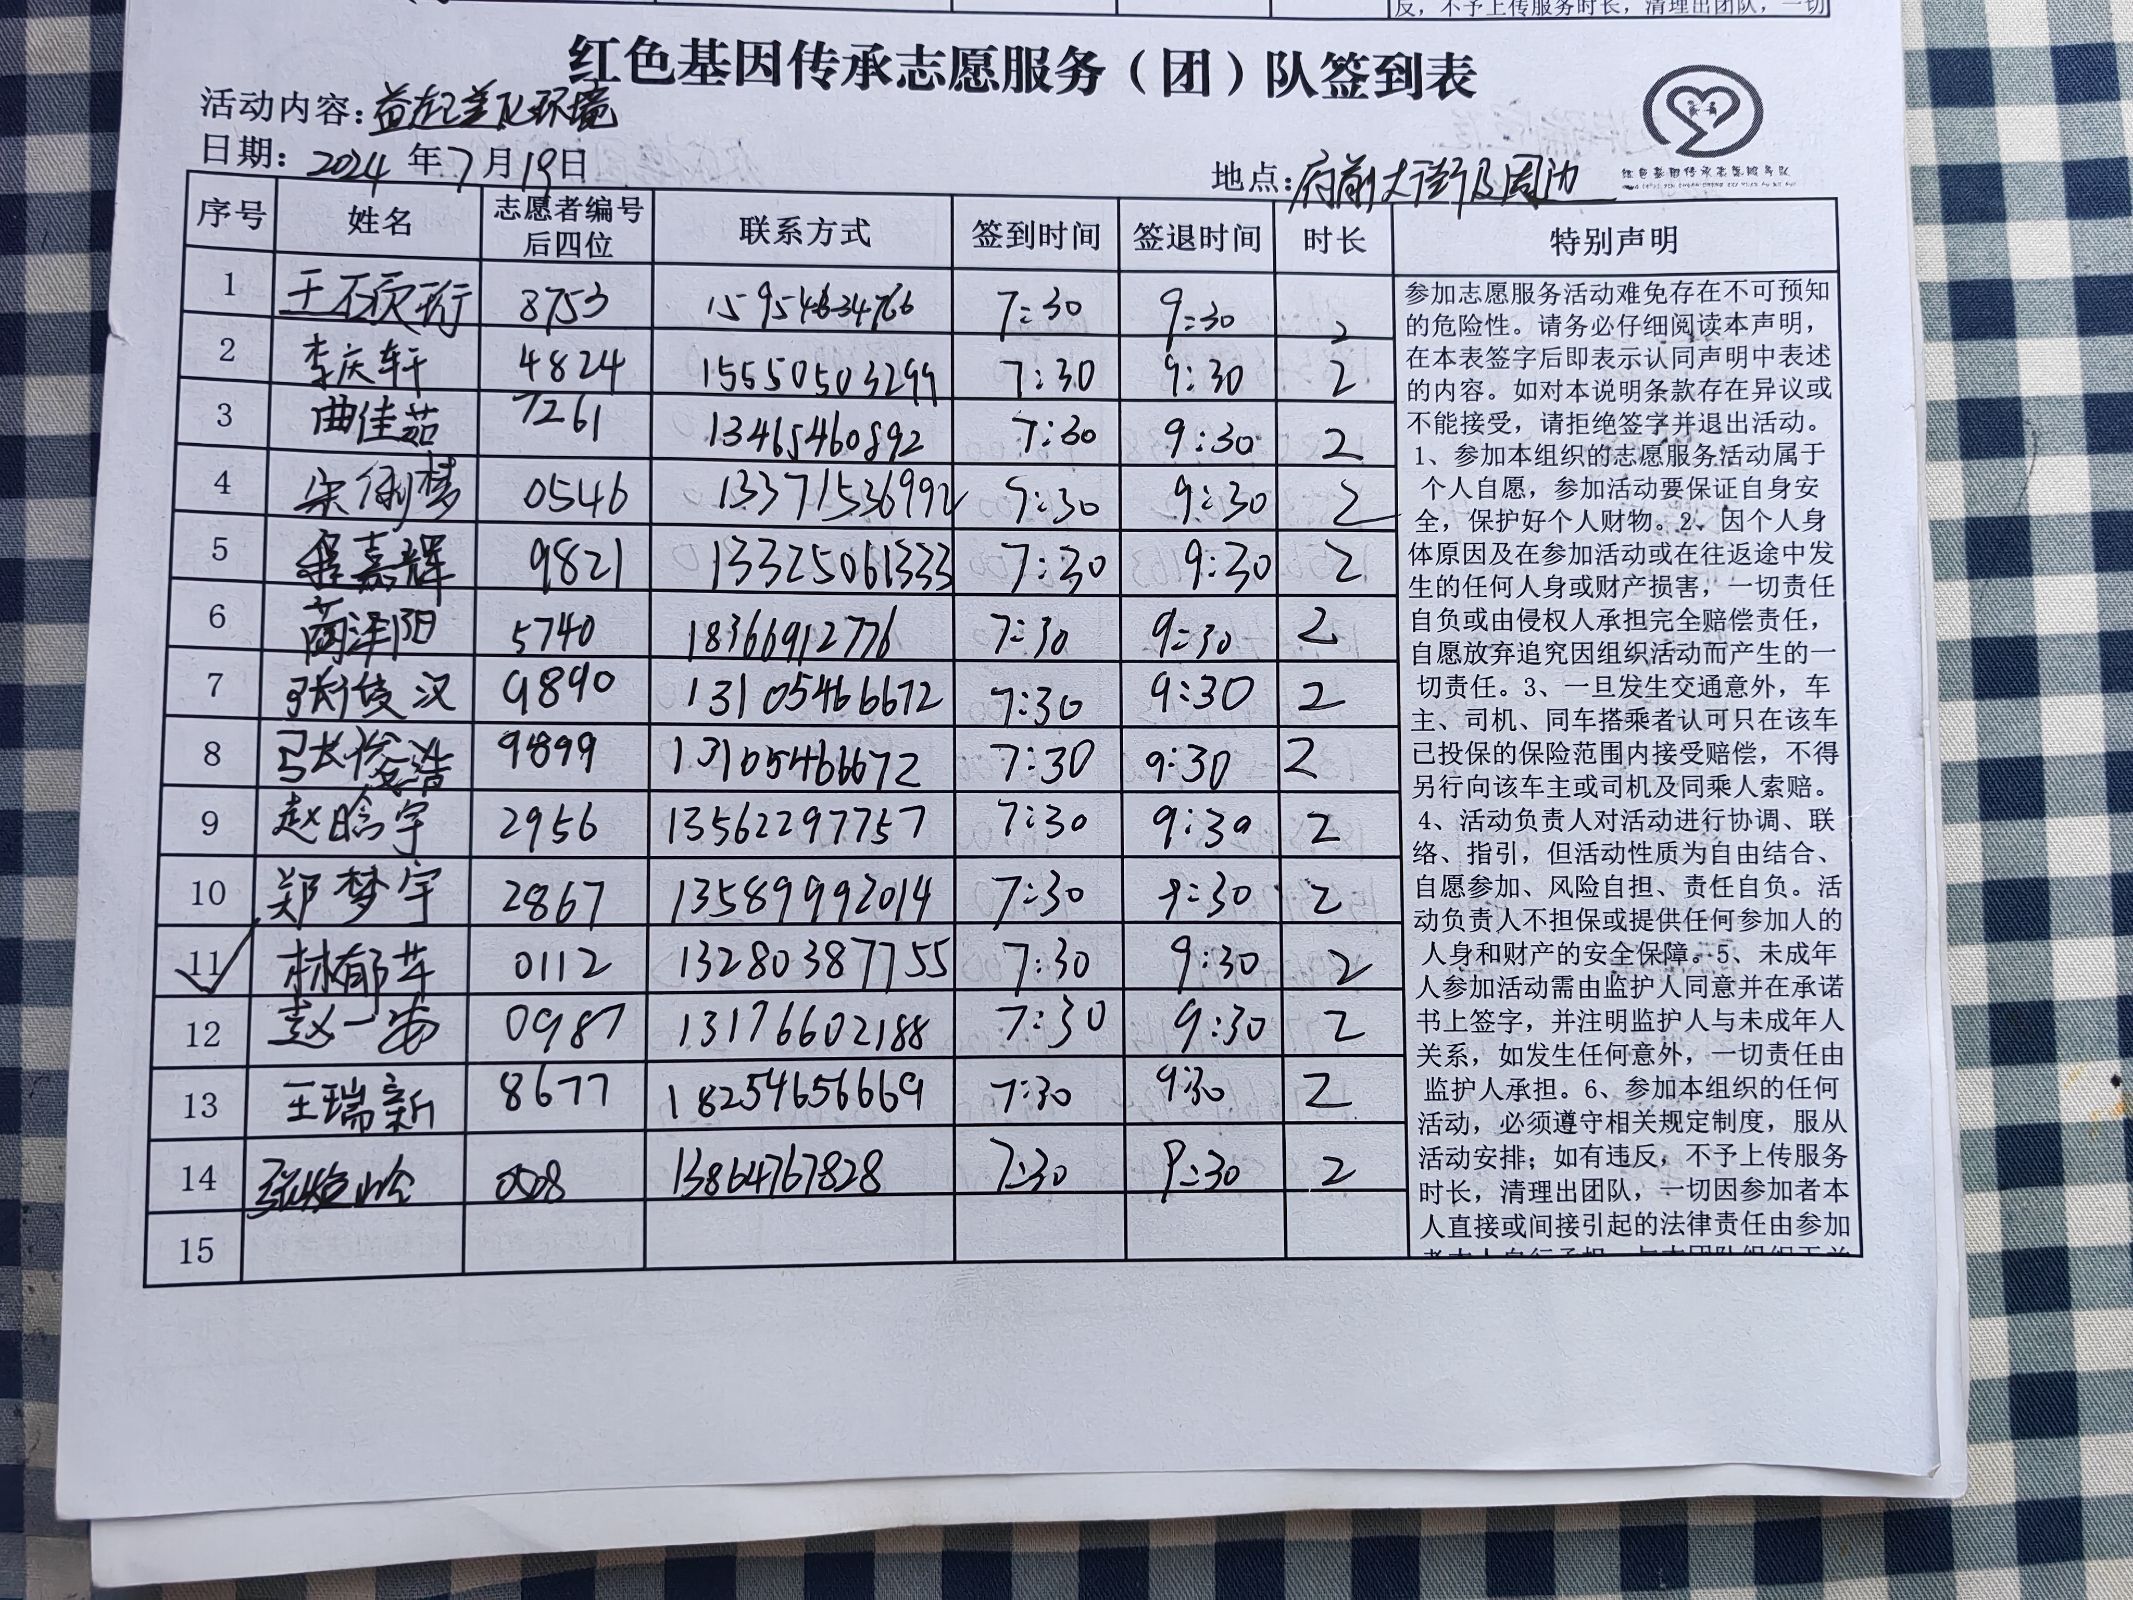 反，不予上传服务时长，清理出团队，一切
红色基因传承志愿服务（团）队签到表
活动内容：益起美化环境
日期：2024年7月19日
地点：府前大街及周边
红色基因传承志愿服务队
序号 姓名 志愿者编号后四位 联系方式 签到时间 签退时间 时长 特别声明
1 王硕珩 8753 15954634766 7:30 9:30 2
2 李庆轩 4824 15550503299 7:30 9:30 2
3 曲佳茹 7261 13465460892 7:30 9:30 2
4 宋俐梦 0546 13371536992 7:30 9:30 2
5 嘉辉 9821 13325061333 7:30 9:30 2
6 泽阳 5740 18366912776 7:30 9:30 2
7 张俊汉 9890 13105466672 7:30 9:30 2
8 张俊浩 9899 13105466672 7:30 9:30 2
9 赵晗宇 2956 13562297757 7:30 9:30 2
10 郑梦宇 2867 13589992014 7:30 9:30 2
11 林郁苹 0112 13280387755 7:30 9:30 2
12 赵一海 0987 13176602188 7:30 9:30 2
13 王瑞新 8677 18254656669 7:30 9:30 2
14 13864767828 7:30 9:30 2
15
参加志愿服务活动难免存在不可预知
的危险性。请务必仔细阅读本声明，
在本表签字后即表示认同声明中表述
的内容。如对本说明条款存在异议或
不能接受，请拒绝签字并退出活动。
1、参加本组织的志愿服务活动属于
个人自愿，参加活动要保证自身安
全，保护好个人财物。2、因个人身
体原因及在参加活动或在往返途中发
生的任何人身或财产损害，一切责任
自负或由侵权人承担完全赔偿责任，
自愿放弃追究因组织活动而产生的一
切责任。3、一旦发生交通意外，车
主、司机、同车搭乘者认可只在该车
已投保的保险范围内接受赔偿，不得
另行向该车主或司机及同乘人索赔。
4、活动负责人对活动进行协调、联
络、指引，但活动性质为自由结合、
自愿参加、风险自担、责任自负。活
动负责人不担保或提供任何参加人的
人身和财产的安全保障。5、未成年
人参加活动需由监护人同意并在承诺
书上签字，并注明监护人与未成年人
关系，如发生任何意外，一切责任由
监护人承担。6、参加本组织的任何
活动，必须遵守相关规定制度，服从
活动安排；如有违反，不予上传服务
时长，清理出团队，一切因参加者本
人直接或间接引起的法律责任由参加